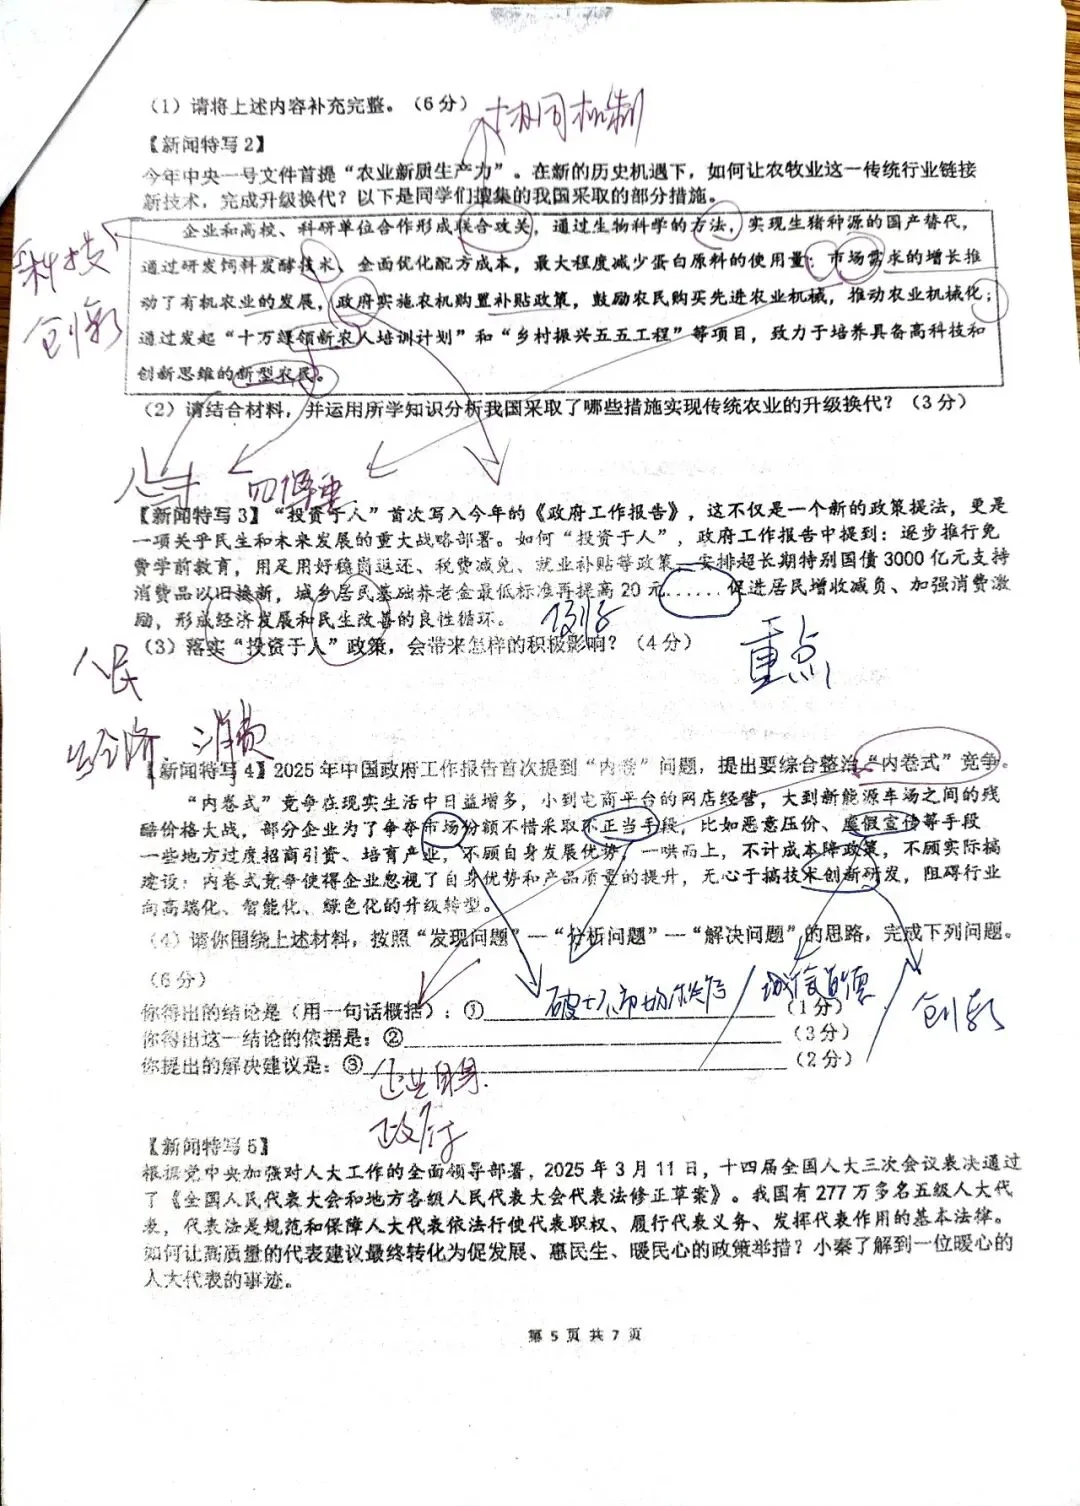 (1)请将上述内容补充完整。(6分)
协同机制
【新闻特写2】
今年中央一号文件首提“农业新质生产力”。在新的历史机遇下，如何让农牧业这一传统行业链接
新技术，完成升级换代？以下是同学们搜集的我国采取的部分措施。
企业和高校、科研单位合作形成联合攻关，通过生物科学的方法，实现生猪种源的国产替代，
通过研发饲料发酵技术、全面优化配方成本，最大程度减少蛋白原料的使用量；市场需求的增长推
动了有机农业的发展，政府实施农机购置补贴政策，鼓励农民购买先进农业机械，推动农业机械化；
通过发起“十万领新农人培训计划”和“乡村振兴五五工程”等项目，致力于培养具备高科技和
创新思维的新型农民。
科技
创新
(2)请结合材料，并运用所学知识分析我国采取了哪些措施实现传统农业的升级换代？(3分)
人才
【新闻特写3】“投资于人”首次写入今年的《政府工作报告》，这不仅是一个新的政策提法，更是
一项关乎民生和未来发展的重大战略部署。如何“投资于人”，政府工作报告中提到：逐步推行免
费学前教育，用足用好稳岗返还、税费减免、就业补贴等政策—安排超长期特别国债3000亿元支持
消费品以旧换新，城乡居民基础养老金最低标准再提高20元......促进居民增收减负、加强消费激
励，形成经济发展和民生改善的良性循环。
(3)落实“投资于人”政策，会带来怎样的积极影响？(4分)
重点
人民
经济 消费
【新闻特写4】2025年中国政府工作报告首次提到“内卷”问题，提出要综合整治“内卷式”竞争。
“内卷式”竞争在现实生活中日益增多，小到电商平台的网店经营，大到新能源车场之间的残
酷价格大战，部分企业为了争夺市场份额不惜采取不正当手段，比如恶意压价、虚假宣传等手段
一些地方过度招商引资、培育产业，不顾自身发展优势，一哄而上，不计成本降政策，不顾实际搞
建设；内卷式竞争使得企业忽视了自身优势和产品质量的提升，无心于搞技术创新研发，阻碍行业
向高端化、智能化、绿色化的升级转型。
(4)请你围绕上述材料，按照“发现问题”—“分析问题”—“解决问题”的思路，完成下列问题。
(6分)
你得出的结论是(用一句话概括)：①(1分)
诚信道德
创新
你得出这一结论的依据是：②(3分)
你提出的解决建议是：③(2分)
政府
【新闻特写5】
根据党中央加强对人大工作的全面领导部署，2025年3月11日，十四届全国人大三次会议表决通过
了《全国人民代表大会和地方各级人民代表大会代表法修正草案》。我国有277万多名五级人大代
表，代表法是规范和保障人大代表依法行使代表职权、履行代表义务、发挥代表作用的基本法律。
如何让高质量的代表建议最终转化为促发展、惠民生、暖民心的政策举措？小秦了解到一位暖心的
人大代表的事迹。
第5页共7页